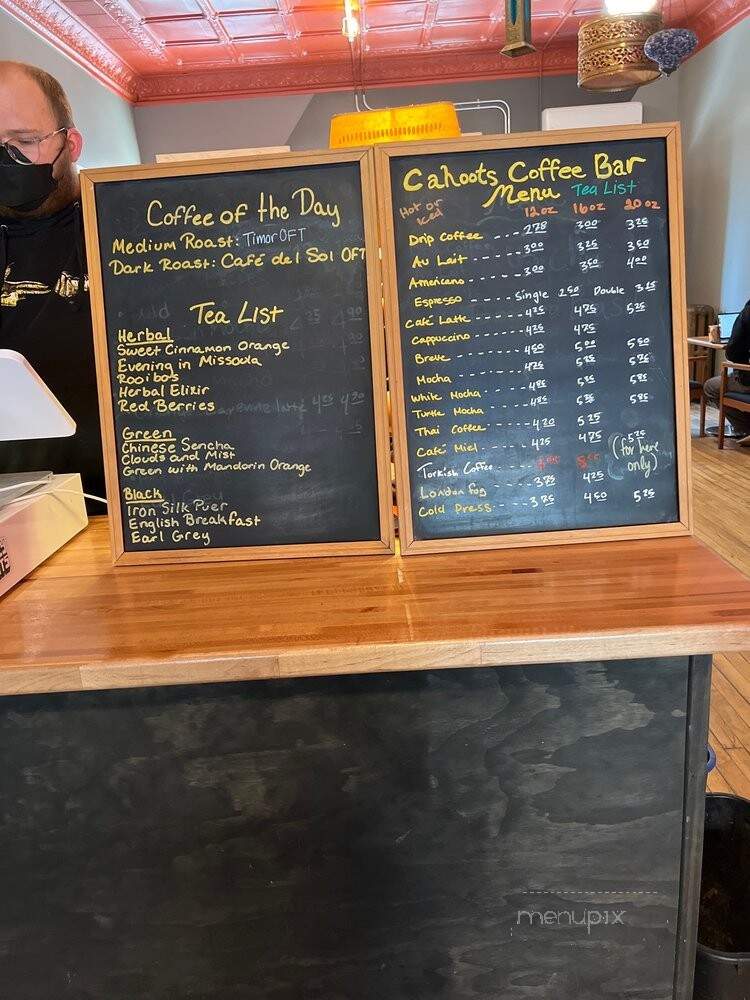 Coffee of the Day
Medium Roast: Timor OFT
Dark Roast: Café del Sol OFT
Tea List
Herbal
Sweet Cinnamon Orange
Evening in Missoula
Rooibos
Herbal Elixir
Red Berries
Green
Chinese Sencha
Clouds and Mist
Green with Mandorin Orange
Black
Iron Silk Puer
English Breakfast
Earl Grey
Cahoots Coffee Bar
Menu Tea List
Hot or Iced 12oz 16oz 20oz
Drip Coffee ---- 300 325
Au Lait ---- 300 325 350
Americano ---- 300 350 400
Espresso ---- Single 250 Double 325
Café Latte ---- 425 475 525
Cappuccino ---- 425 475
Breve ---- 450 500 550
Mocha ---- 475 525 575
White Mocha ---- 485 535 585
Turtle Mocha ---- 485 535 585
Thai Coffee ---- 420 525
Café Miel ---- 425 475 525
Turkish Coffee ---- (for here only)
London Fog ---- 375 425
Cold Press ---- 375 450 525
menupix